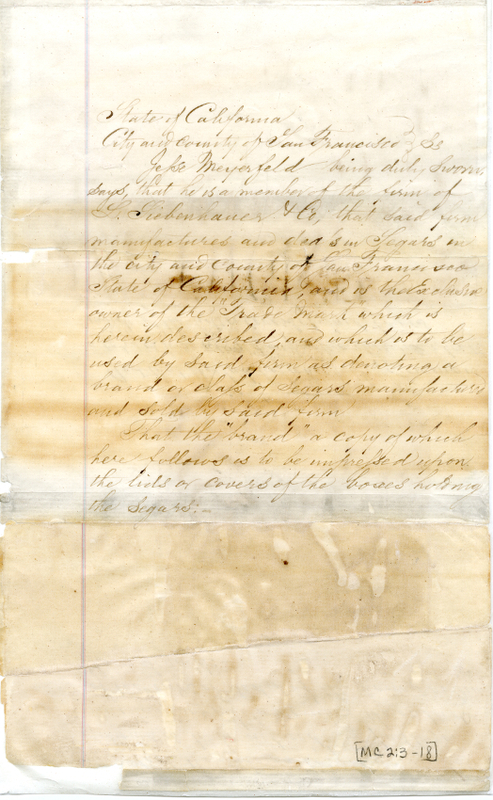 State of California
City and County of San Francisco } Ss
Jesse Meyerfeld being duly sworn,
says, that he is a member of the firm of
L. Siebenhauer & Co, that said firm
manufactures and deals in Segars in
the City and County of San Francisco
State of California, and is the exclusive
owner of the "Trade Mark" which is
herein described, and which is to be
used by said firm as denoting a
brand or class of Segars manufactured
and sold by said firm
That the "brand" a copy of which
here follows is to be impressed upon
the lids or covers of the boxes holding
the Segars:—
[MC 2:3-18]